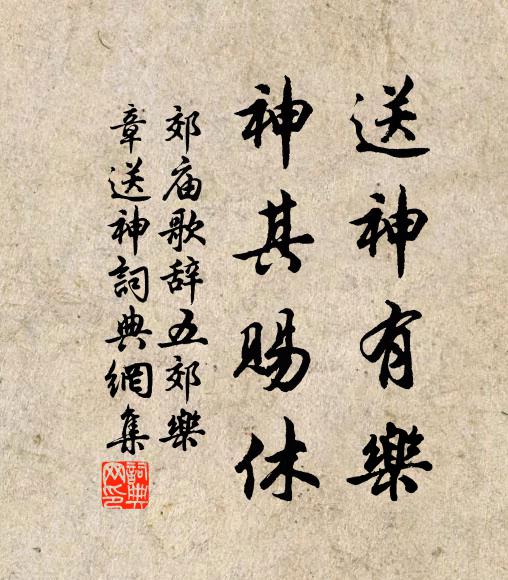 送神有樂
神其賜休
郊庙歌辞五郊樂
章送神詞典網集
詞典网印